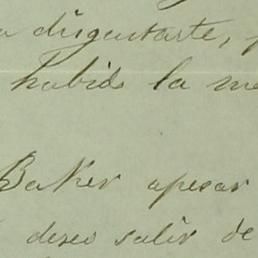 a disgustarte,
habido la me
Baker apesar
deseo salir de